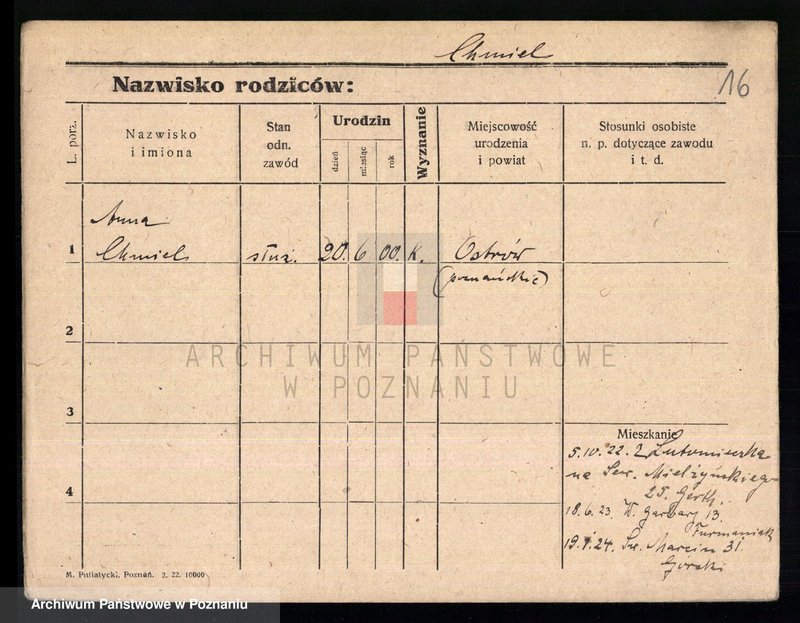 Chmiel
Nazwisko rodziców:
16
L. porz.
Nazwisko
i imiona
Stan
odn.
zawód
Urodzin
dzień
miesiąc
rok
Wyznanie
Miejscowość
urodzenia
i powiat
Stosunki osobiste
n. p. dotyczące zawodu
i t. d.
Anna
1 Chmiel służ. 20. 6 00. K. Ostrów
(poznańskie)
2
ARCHIWUM PAŃSTWOWE
W POZNANIU
3
Mieszkanie
5.10.22. z Lutomierska
na Sew. Mielżyńskiego
4
25. Gerth.
18.6.23. W. Garbary 13
Furmaniak
19.1.24. Św. Marcin 31.
Gorski
M. Putiatycki, Poznań. 2. 22. 10000
Archiwum Państwowe w Poznaniu